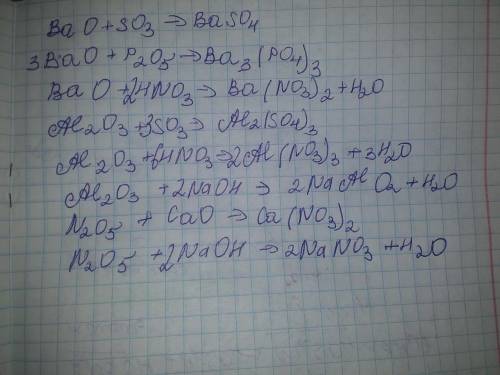 BaO + SO3 → BaSO4
3BaO + P2O5 → Ba3(PO4)3
BaO + 2HNO3 → Ba(NO3)2 + H2O
Al2O3 + 3SO3 → Al2(SO4)3
Al2O3 + 6HNO3 → 2Al(NO3)3 + 3H2O
Al2O3 + 2NaOH → 2NaAlO2 + H2O
N2O5 + CaO → Ca(NO3)2
N2O5 + 2NaOH → 2NaNO3 + H2O